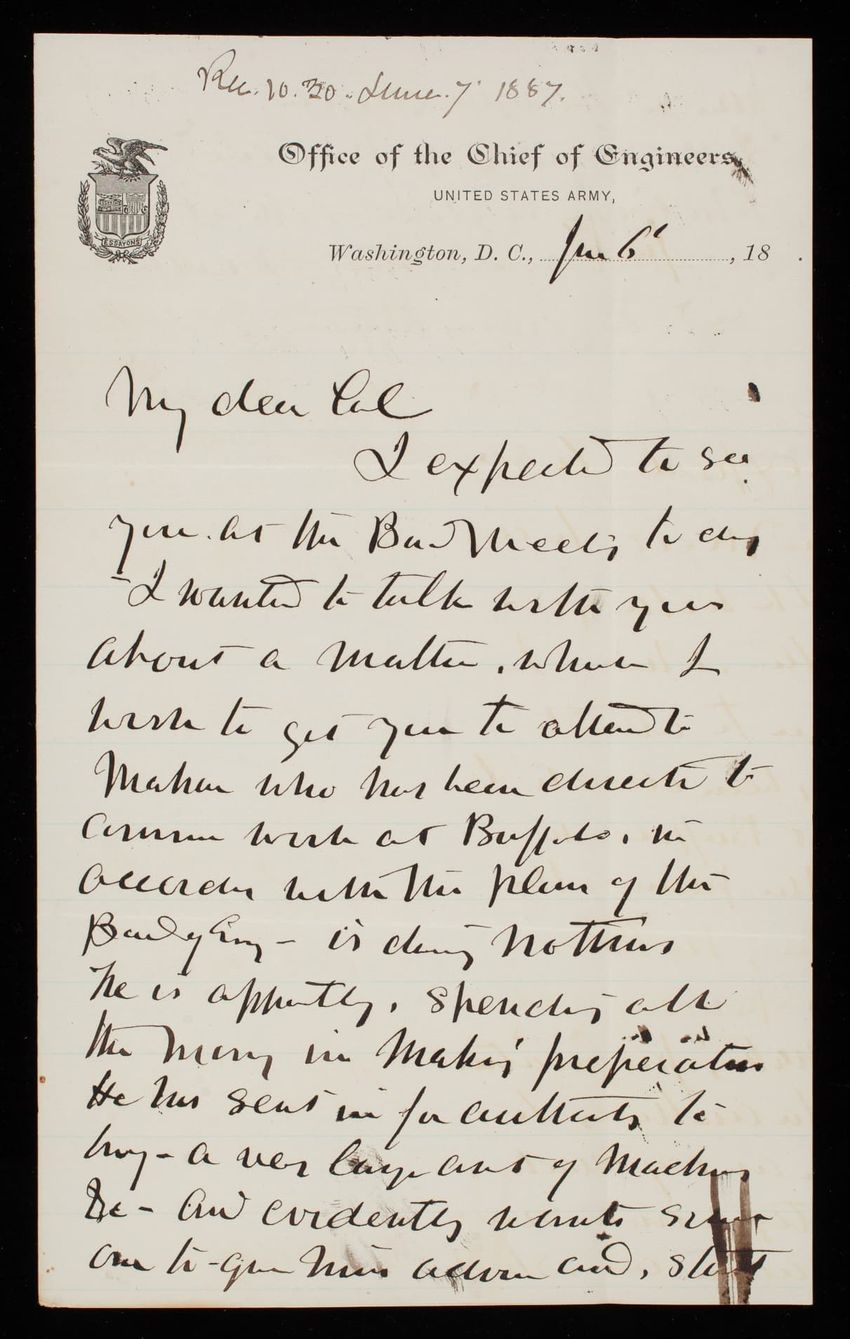 Rec. 10.30. June. 7 1887.
Office of the Chief of Engineers,
UNITED STATES ARMY,
ESSAYONS
Washington, D. C., Jun 6 , 18 .
My dear Col
I expected to see
you at the Bd Meeting to day
- I wanted to talk with you
about a matter, whom I
wish to get you to attend to
Mahan who has been directed to
work at Buffalo, in
accordce with the plan of the
Bd of Eng - is doing nothing
he is appntly, spending all
the money in making preparations
He has sent in for authority to
buy - a very large amt of Machiny
&c - and evidently wants some
one to give him advice and, start